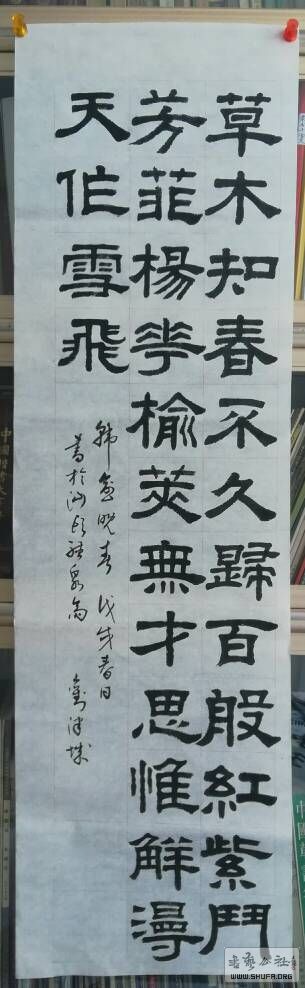 草木知春不久歸百般紅紫鬥
芳菲楊花榆莢無才思惟解漫
天作雪飛
韩愈晚春 戊戌春日
書於汕頭
书艺公社
WWW.SHUFA.ORG